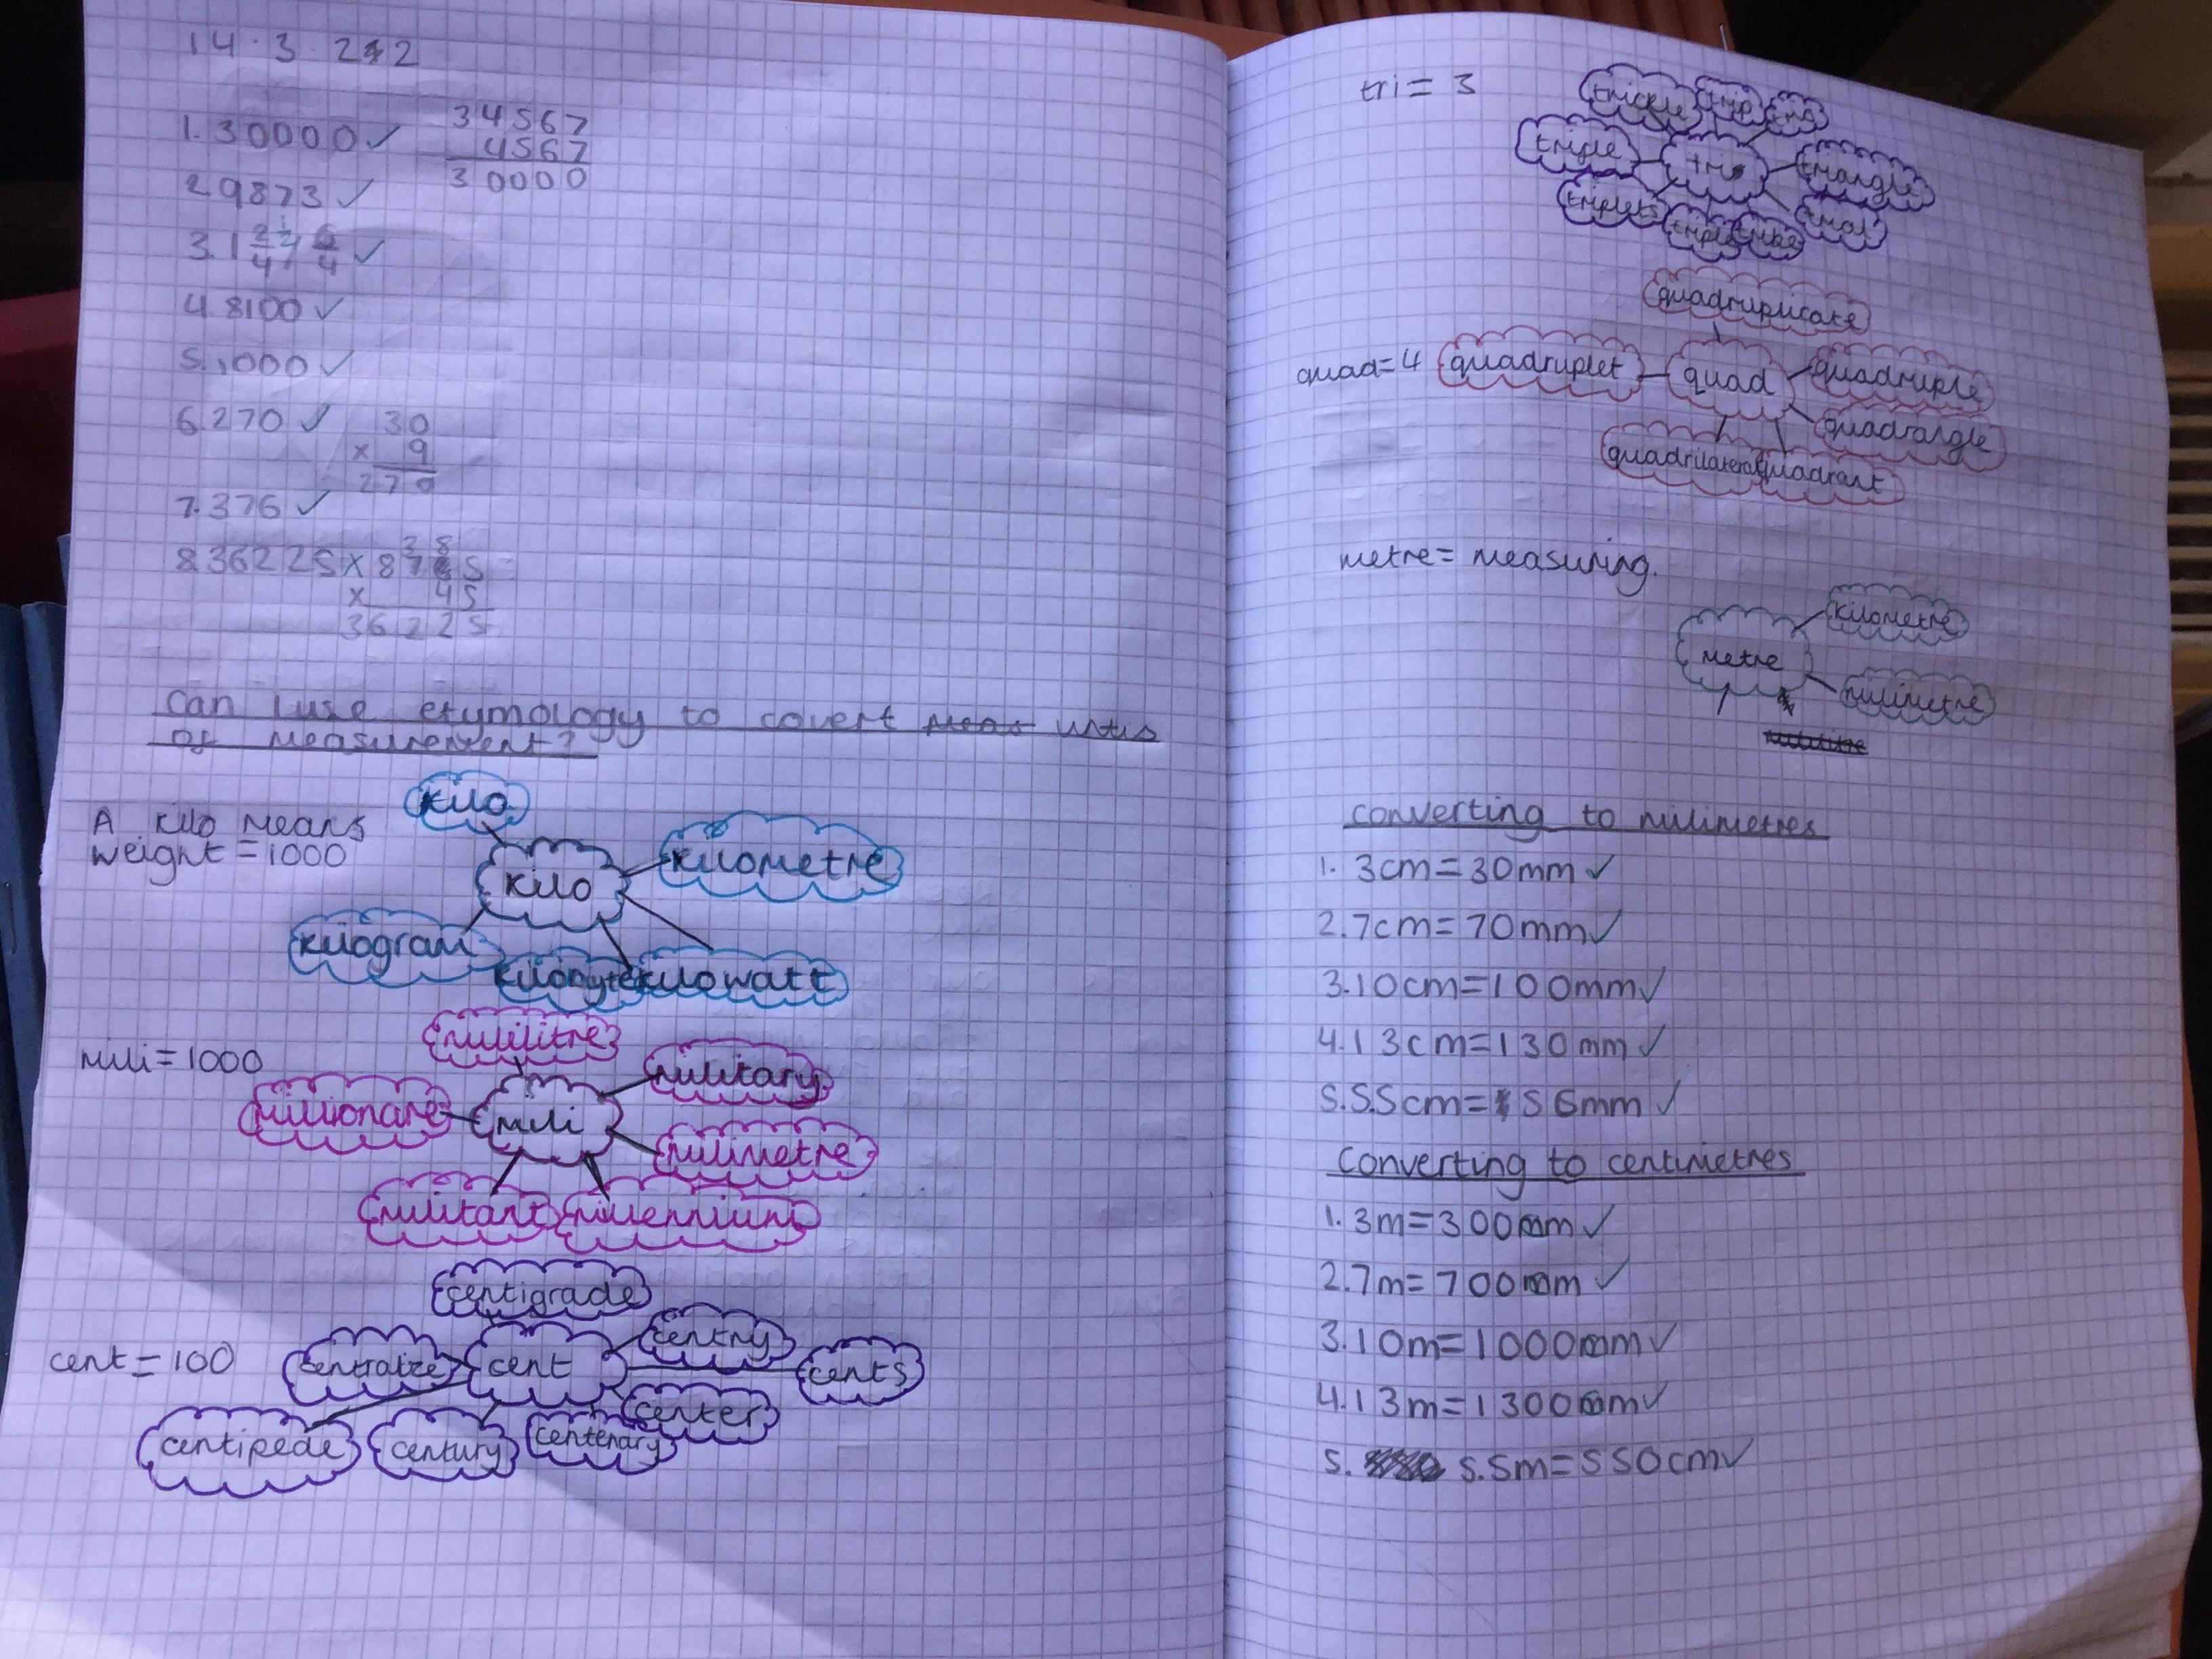 14.3.22
1. 30000 ✓
34567
4567
30000
2 9873 ✓
3. 1 2/4 6/4 ✓
4. 8100 ✓
5. 1000 ✓
6 270 ✓
30
× 9
270
7. 376 ✓
8. 36225 ×
45
×
36225
can I use etymology to covert meas untis
of measurement?
A kilo means
weight = 1000
kilo
kilo
kilometre
kilogram
kilobyte
kilowatt
mili = 1000
mililitre
mili
military
millionare
milimetre
militant
millennium
cent = 100
centigrade
cent
centry
cents
centralize
center
centipede
century
centenary
tri = 3
trickle
trip
trio
triple
tri
triangle
triplets
trial
tribe
quad = 4
quadruplicate
quadruplet
quad
quadruple
quadrangle
quadrilateral
quadrant
metre = measuring.
metre
kilometre
milimetre
converting to milimetres
1. 3cm = 30mm ✓
2. 7cm = 70mm ✓
3. 10cm = 100mm ✓
4. 13cm = 130mm ✓
5. 5.5cm = 56mm ✓
converting to centimetres
1. 3m = 300cm ✓
2. 7m = 700cm ✓
3. 10m = 1000cm ✓
4. 13m = 1300cm ✓
5. 5.5m = 550cm ✓